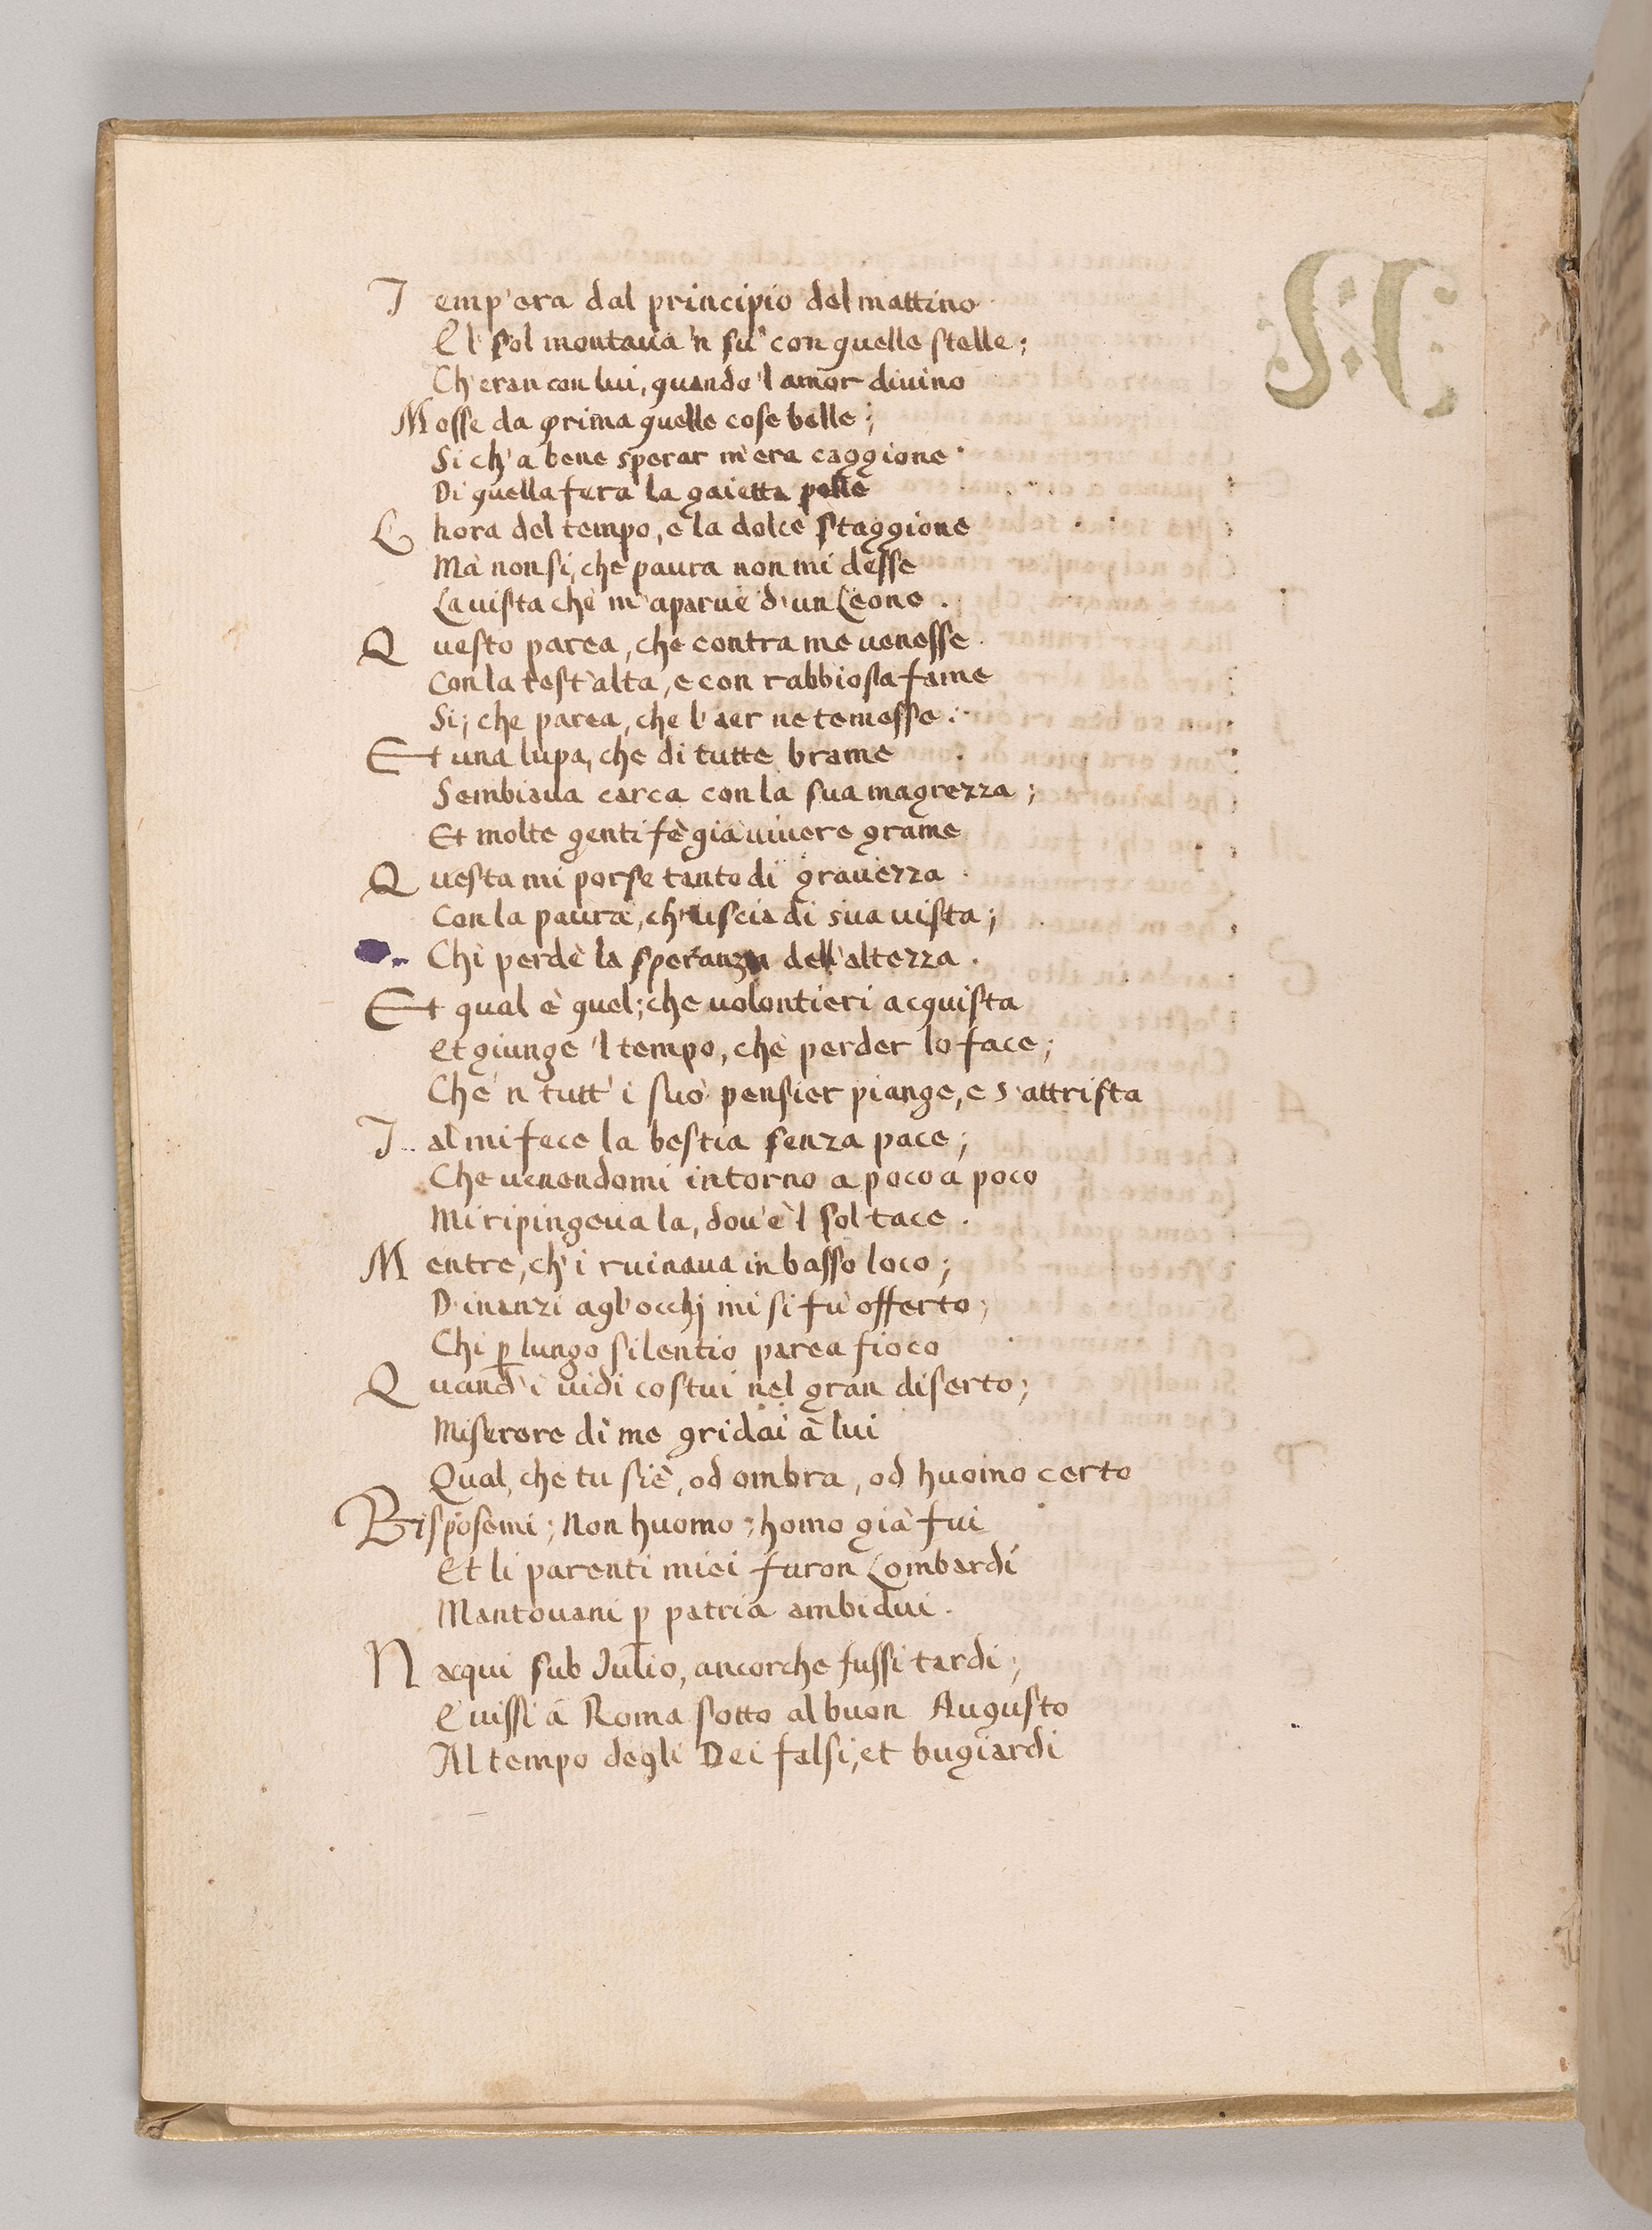 Temp'era dal principio del mattino
El' sol montaua 'n su' con quelle stelle;
Ch'eran con lui, quando 'l amor diuino
Mosse da prima quelle cose belle;
Si ch'a bene sperar m'era caggione
Di quella fera la gaietta pelle
L'hora del tempo, e la dolce staggione
Mà non si, che paura non mi desse
La uista che m'aparue d'un Leone.
Questo parea, che contra me uenesse.
Con la test'alta, e con rabbiosa fame
Si; che parea, che l'aer ne temesse.
Et una lupa, che di tutte brame
Sembiaua carca con la sua magrezza;
Et molte genti fè già uiuere grame
Questa mi porse tanto di grauezza.
Con la paura, ch'uscia di sua uista;
Chi perdè la speranza dell'altezza.
Et qual è quel; che uolontieri acquista
et giunge 'l tempo, che perder lo face;
Che 'n tutt' i suo pensier piange, e s'attrista
Tal mi fece la bestia senza pace;
Che uenendomi intorno a poco a poco
Mi ripingeua la, dou'è 'l sol tace.
Mentre, ch'i ruinaua in basso loco;
Dinanzi agl'occhi mi si fu offerto;
Chi p lungo silentio parea fioco
Quand'i uidi costui nel gran diserto;
Miserere di me gridai à lui
Qual, che tu siè, od ombra, od huomo certo
Risposemi; Non huomo; homo già fui
Et li parenti miei furon Lombardi
Mantouani p patria ambidui.
Nacqui sub Julio, ancorche fussi tardi;
E uissi à Roma sotto al buon Augusto
Al tempo degli Dei falsi, et bugiardi